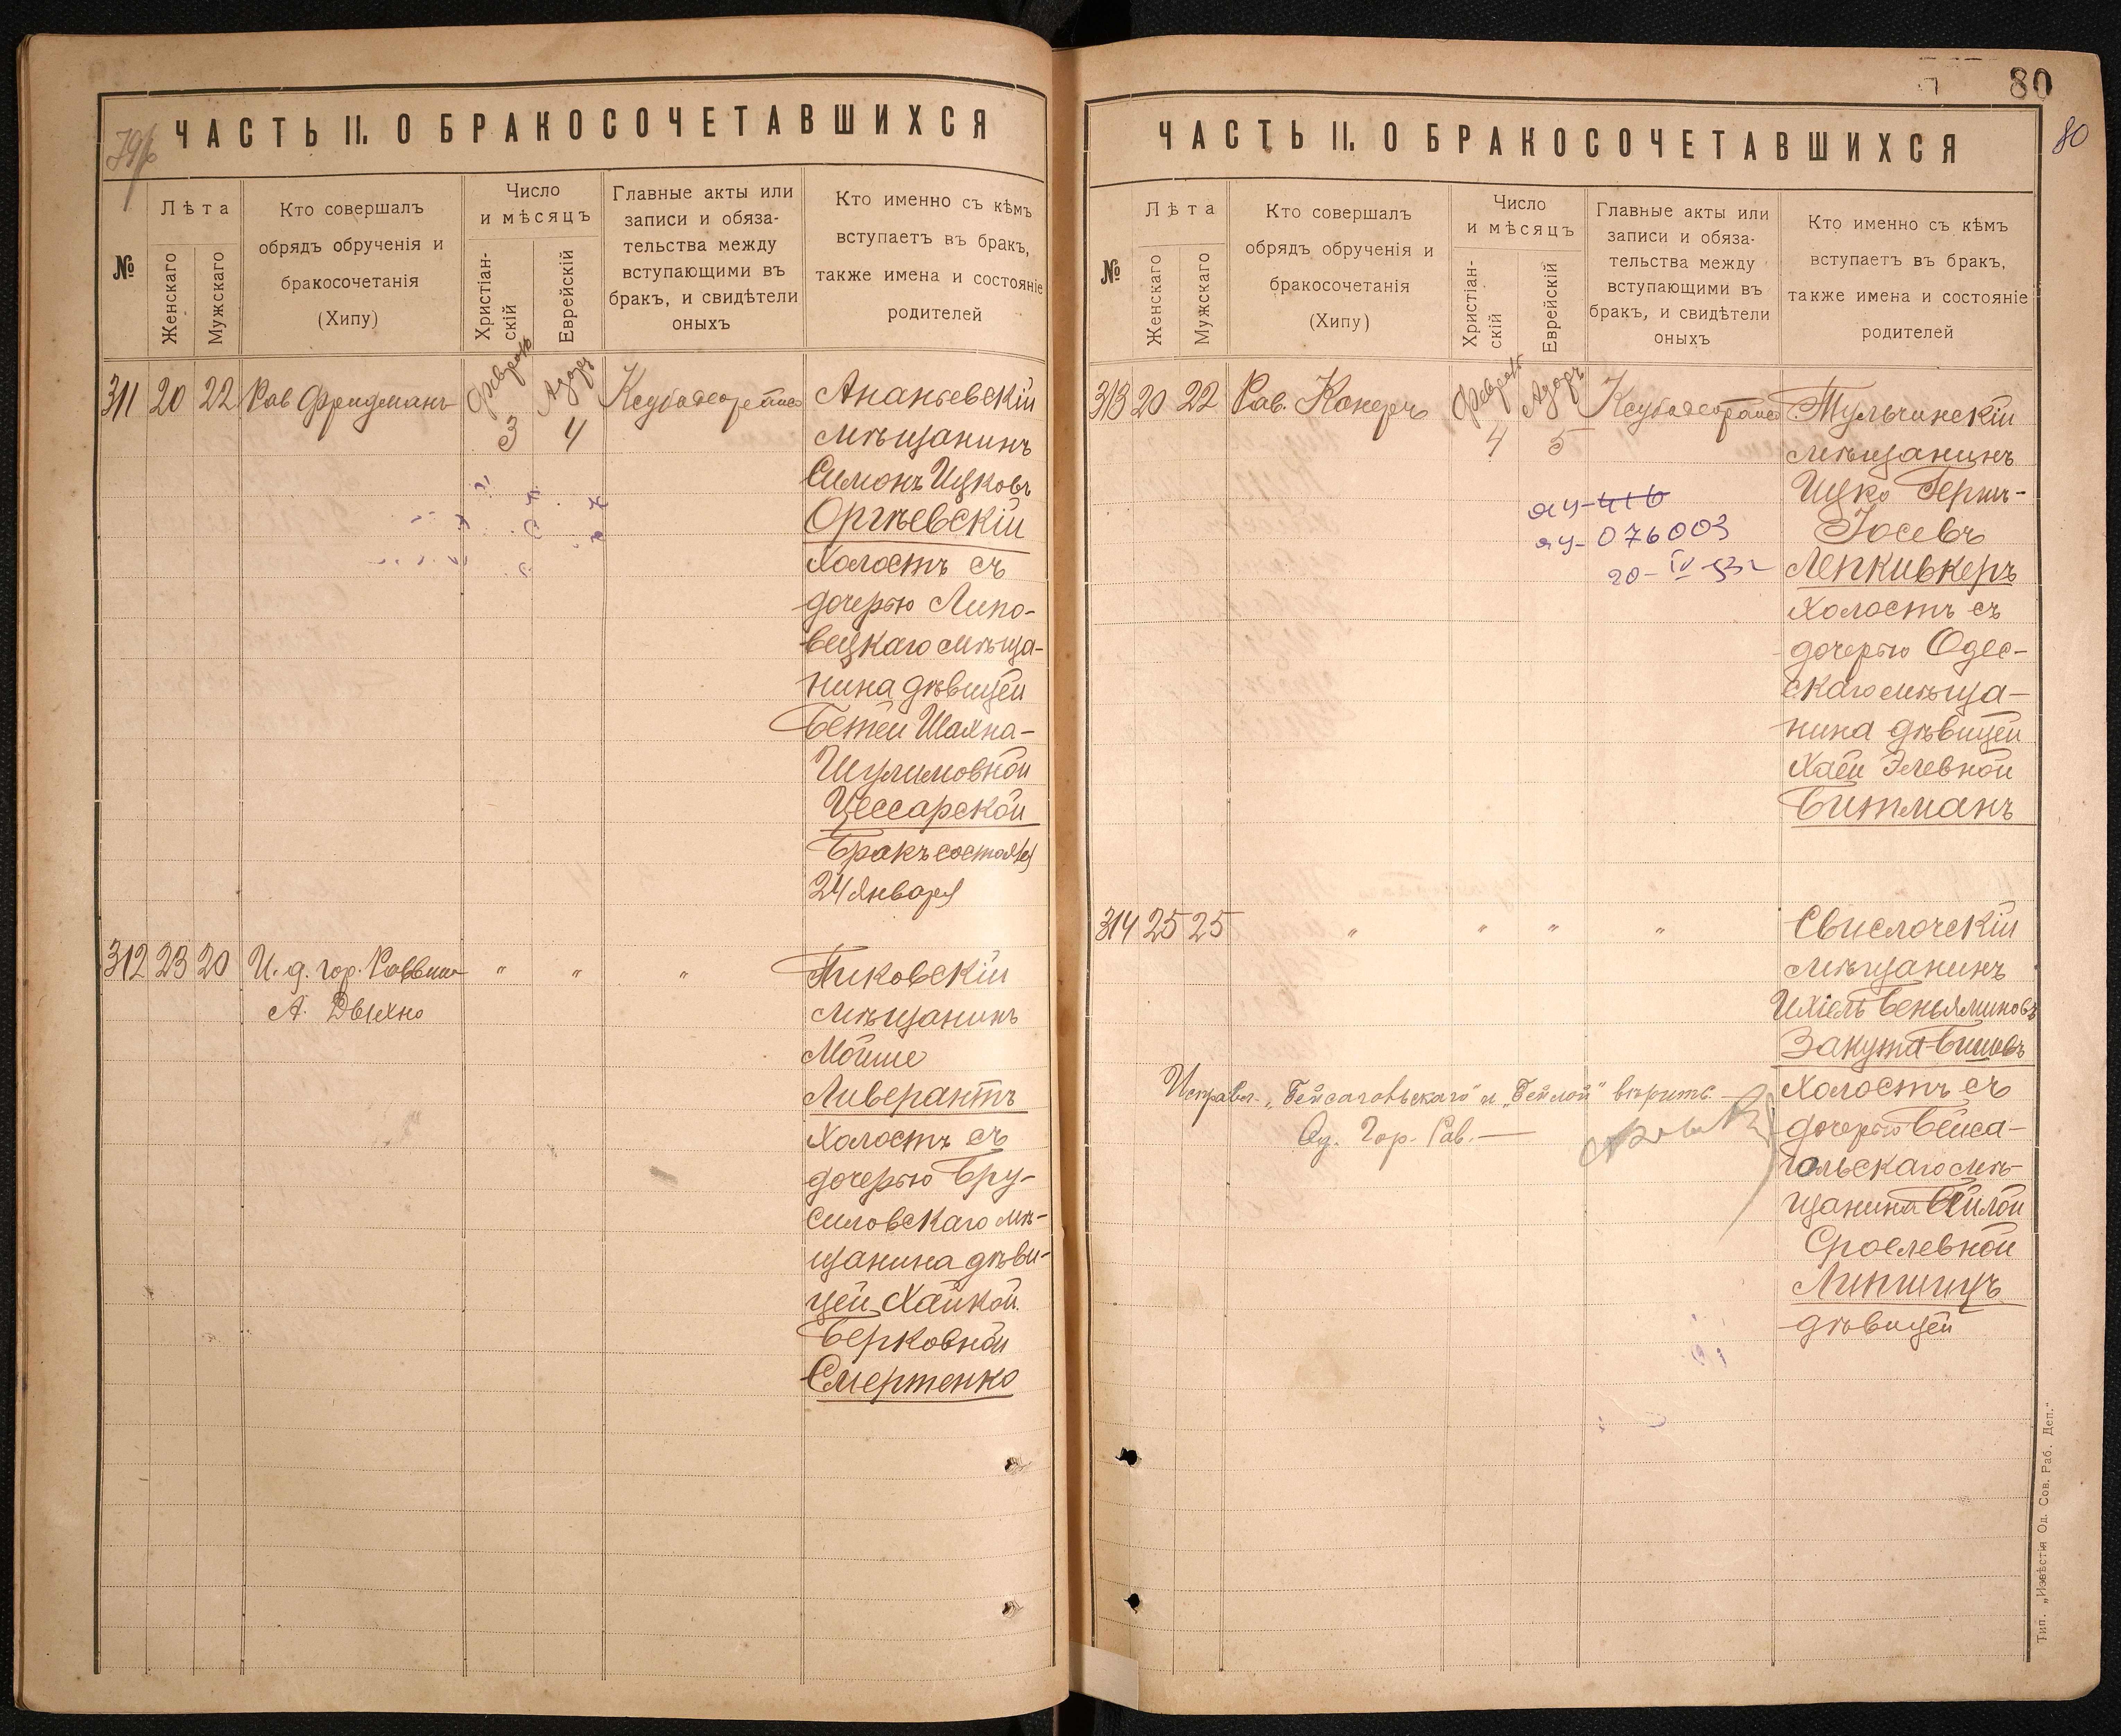 ЧАСТЬ II. О БРАКОСОЧЕТАВШИХСЯ
№
Лѣта
Женскаго
Мужскаго
Кто совершалъ
обрядъ обрученія и
бракосочетанія
(Хипу)
Число
и мѣсяцъ
Христіан-
скій
Еврейскій
Главные акты или
записи и обяза-
тельства между
вступающими въ
бракъ, и свидѣтели
оныхъ
Кто именно съ кѣмъ
вступаетъ въ бракъ,
также имена и состояніе
родителей
311 20 22 Рав Фридманъ
Февраль
3
Адаръ
4
Ананьевскій
мѣщанинъ
Симонъ Ицковъ
Оргѣевскій
Холостъ съ
дочерью Липо-
вецкаго мѣща-
нина дѣвицей
Бетей Шахна-
Шулимовной
Цессарской
Бракъ состоялся
24 января
312 23 20 И. д. гор. Раввина
А. Двыхно
" " "
Пиковскій
мѣщанинъ
Мойше
Ливерантъ
Холостъ съ
дочерью Бру-
силовскаго мѣ-
щанина дѣви-
цей Хайкой
Берковной
Смертенко
80
80
ЧАСТЬ II. О БРАКОСОЧЕТАВШИХСЯ
№
Лѣта
Женскаго
Мужскаго
Кто совершалъ
обрядъ обрученія и
бракосочетанія
(Хипу)
Число
и мѣсяцъ
Христіан-
скій
Еврейскій
Главные акты или
записи и обяза-
тельства между
вступающими въ
бракъ, и свидѣтели
оныхъ
Кто именно съ кѣмъ
вступаетъ въ бракъ,
также имена и состояніе
родителей
313 20 22 Рав. Конеръ
Февраль
4
Адаръ
5
Тульчинскій
мѣщанинъ
Ицко Герш-
Іосевъ
Лепкивкеръ
Холостъ съ
дочерью Одес-
скаго мѣща-
нина дѣвицей
Хаей Элевной
Битманъ
яу-416
яу-076003
20-IV-53г
314 25 25 " " " "
Свислочскій
мѣщанинъ
Ихіель Беньяминовъ
Закута-Бишовъ
Холостъ съ
дочерью Бейса-
гольскаго мѣ-
щанина Бейлой
Сроелевной
Липшицъ
дѣвицей
Исправл. „Бейсагольскаго" и „Бейлой" вѣрить
Од. Гор. Рав.
Тип. „Извѣстія Од. Сов. Раб. Деп."